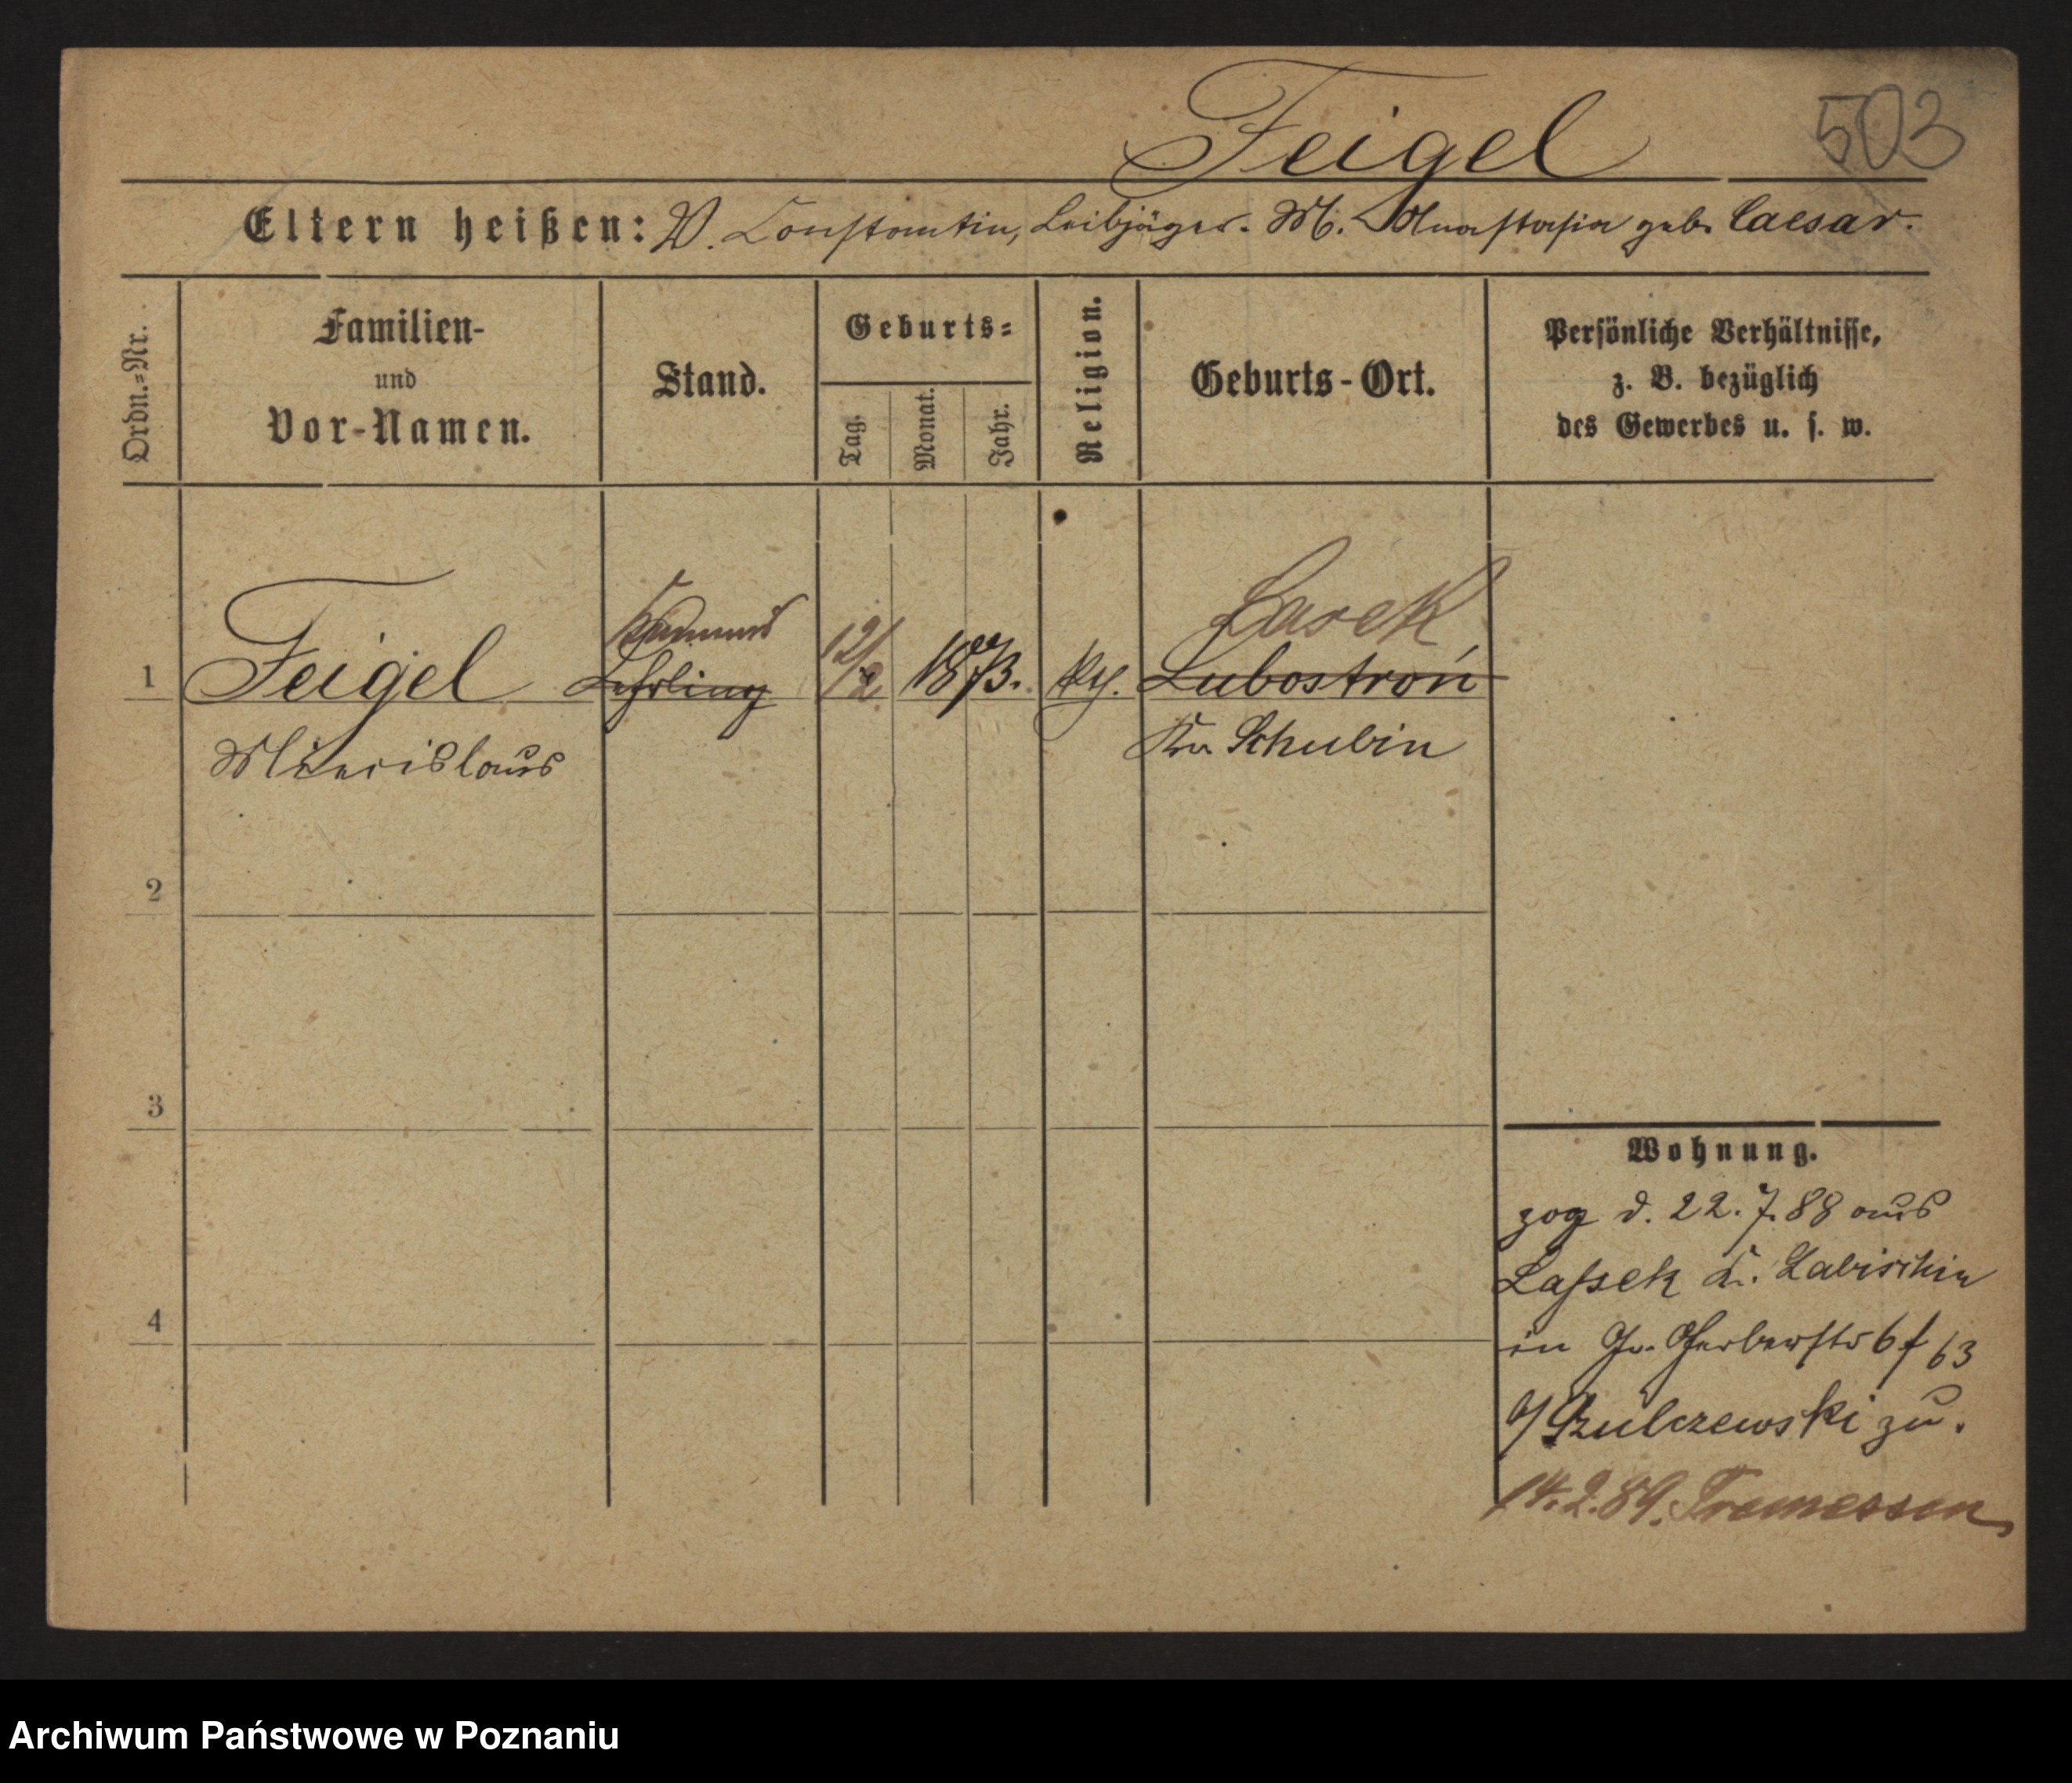 Feigel 503
Eltern heißen: V. Constantin, Leibjäger. M. Anastasia geb. Caesar.
Ordn.=Nr.
Familien-
und
Vor-Namen.
Stand.
Geburts=
Tag.
Monat.
Jahr.
Religion.
Geburts-Ort.
Persönliche Verhältnisse,
z. B. bezüglich
des Gewerbes u. s. w.
Lasek
1 Feigel Lehrling 12/2 1873. kth. Lubostroń
Miecislaus Kr. Schubin
2
3
4
Wohnung.
zog d. 22.7.88 aus
Lassek Kr. Labischin
in Gr. Gerberstr 6 f 63
b/ Szulczewski zu.
14.2.89. Tremessen
Archiwum Państwowe w Poznaniu